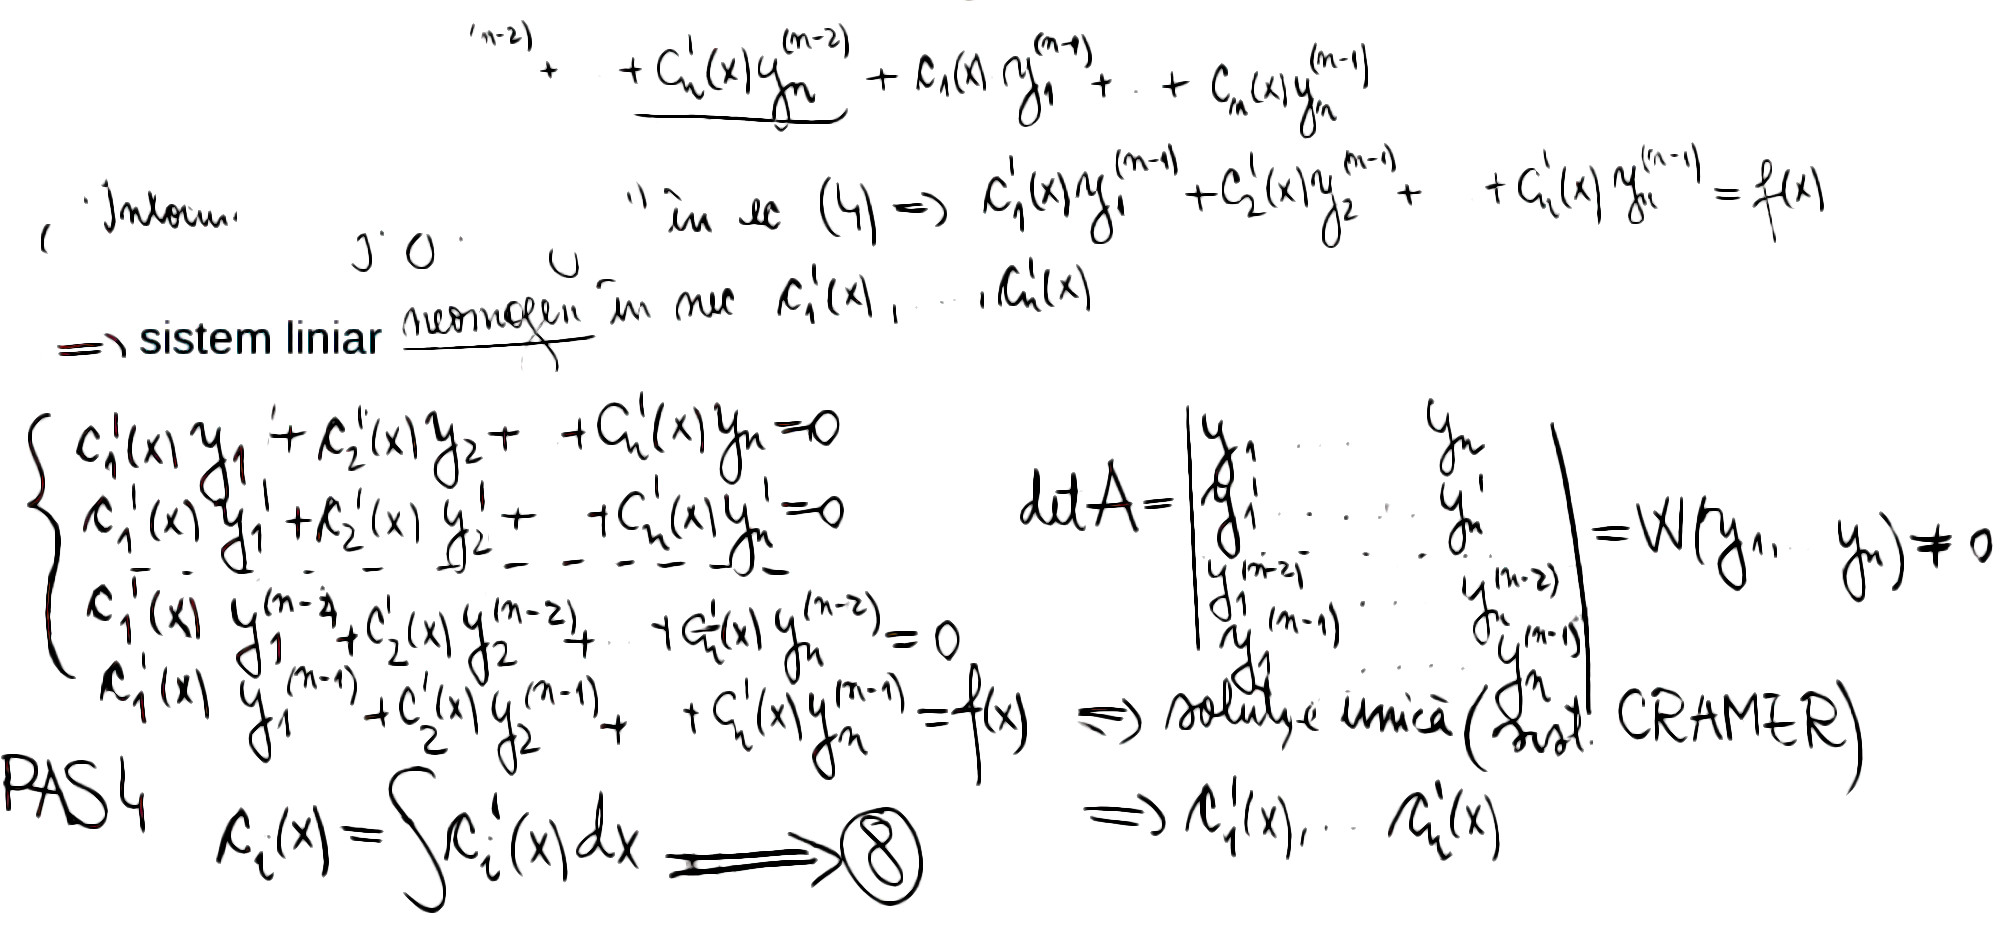 (n-2) + + C_n'(x) y_n^(n-2) + C_1(x) y_1^(n-1) + . + C_n(x) y_n^(n-1)
în ec (4) => C_1'(x) y_1^(n-1) + C_2'(x) y_2^(n-1) + + C_n'(x) y_n^(n-1) = f(x)
=> sistem liniar neomogen în nec C_1'(x), ..., C_n'(x)
C_1'(x) y_1 + C_2'(x) y_2 + + C_n'(x) y_n = 0
C_1'(x) y_1' + C_2'(x) y_2' + + C_n'(x) y_n' = 0
- - - - - - - - - - -
C_1'(x) y_1^(n-2) + C_2'(x) y_2^(n-2) + + C_n'(x) y_n^(n-2) = 0
C_1'(x) y_1^(n-1) + C_2'(x) y_2^(n-1) + + C_n'(x) y_n^(n-1) = f(x)
det A = | y_1 .... y_n
y_1' ..... y_n'
y_1^(n-2) .. y_n^(n-2)
y_1^(n-1) .... y_n^(n-1) | = W(y_1, .. y_n) ≠ 0
=> soluție unică (sist. CRAMER)
=> C_1'(x), .. C_n'(x)
PAS 4
C_i(x) = ∫ C_i'(x) dx => 8